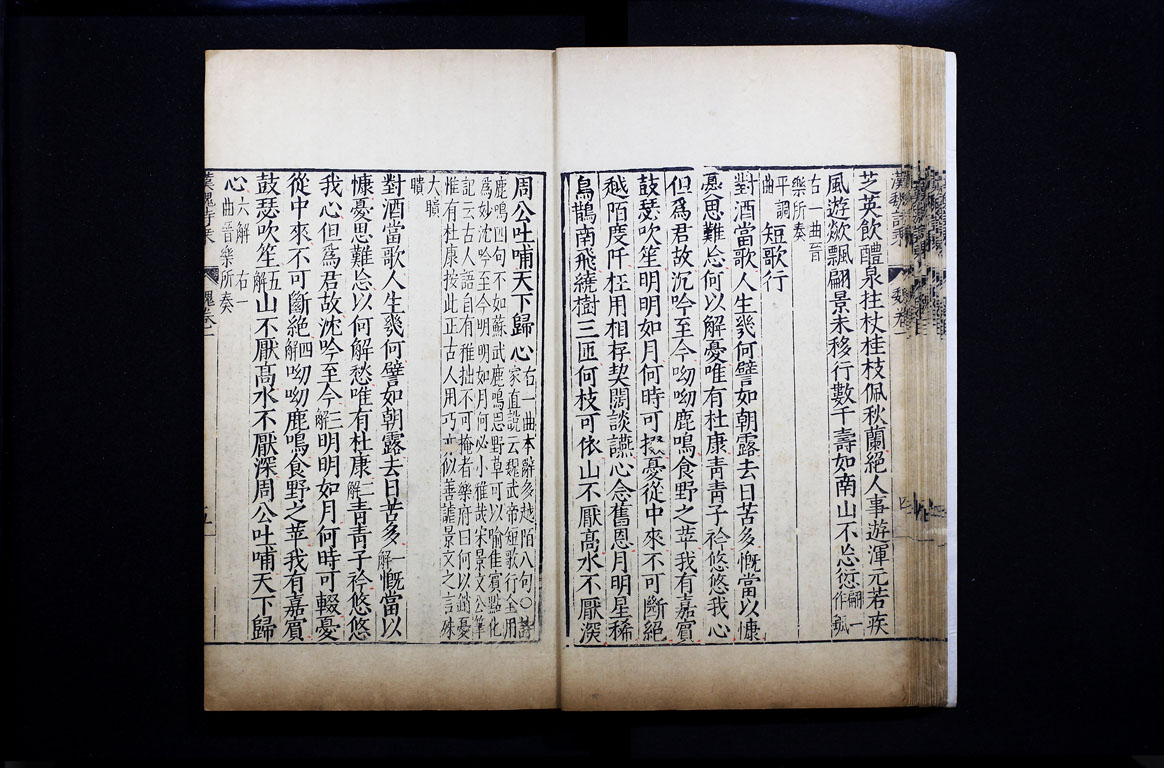 芝英飲醴泉拄杖桂枝佩秋蘭絕人事遊渾元若疾
風遊歘飄翩景未移行數千壽如南山不忘愆翩一
作飄
右一曲晉
樂所奏
平調
曲
短歌行
對酒當歌人生幾何譬如朝露去日苦多慨當以慷
憂思難忘何以解憂唯有杜康青青子衿悠悠我心
但爲君故沉吟至今呦呦鹿鳴食野之苹我有嘉賓
鼓瑟吹笙明明如月何時可掇憂從中來不可斷絕
越陌度阡枉用相存契闊談讌心念舊恩月明星稀
烏鵲南飛繞樹三匝何枝可依山不厭高水不厭深
周公吐哺天下歸心
右一曲本辭多越陌八句○詩
家直說云魏武帝短歌行全用
鹿鳴四句不如蘇武鹿鳴思野草可以喻佳賓點化
爲妙沈吟至今明明如月何必小雅哉宋景文公筆
記云古人語自有椎拙不可掩者樂府曰何以銷憂
惟有杜康按此正古人用巧似善謔景文之言殊
大矌
矌
對酒當歌人生幾何譬如朝露去日苦多一解慨當以
慷憂思難忘以何解愁唯有杜康二解青青子衿悠悠
我心但爲君故沈吟至今三解明明如月何時可輟憂
從中來不可斷絕四解呦呦鹿鳴食野之苹我有嘉賓
鼓瑟吹笙五解山不厭高水不厭深周公吐哺天下歸
心六解
右一
曲晉樂所奏
漢魏詩乘
魏卷一
五